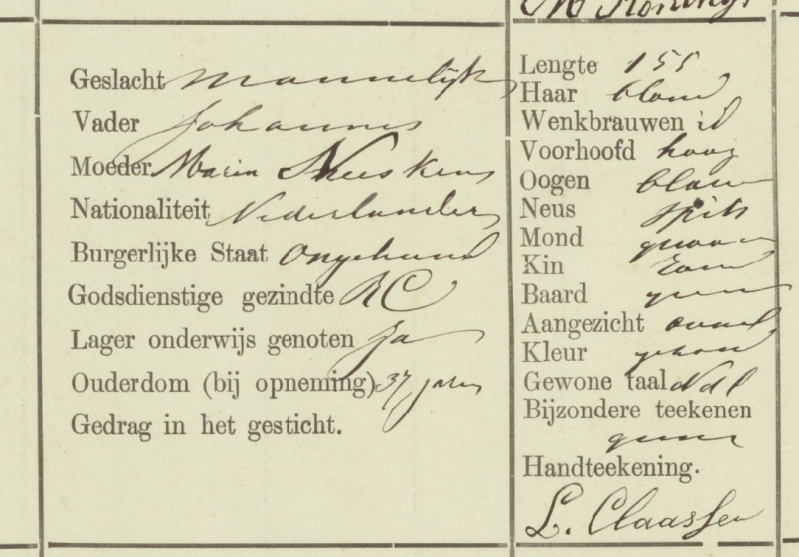 Geslacht mannelijk
Vader Johannes
Moeder Maria
Nationaliteit Nederlander
Burgerlijke Staat Ongehuwd
Godsdienstige gezindte RC
Lager onderwijs genoten Ja
Ouderdom (bij opneming) 37 jaren
Gedrag in het gesticht.
Lengte 155
Haar blond
Wenkbrauwen id
Voorhoofd hoog
Oogen blauw
Neus spits
Mond gewoon
Kin rond
Baard geen
Aangezicht ovaal
Kleur gezond
Gewone taal Ndl
Bijzondere teekenen
geene
Handteekening.
L. Claassen